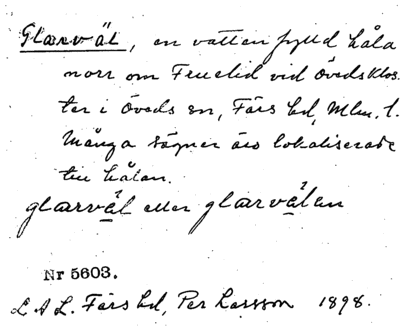 Glarväl, en vattenfylld håla
norr om Fruelid vid Övedsklos-
ter i Öveds sn, Färs hd, Mlm. l.
Många sägner äro lokaliserade
till hålan.
glarväl eller glarvälen
Nr 5603.
L A L. Färs hd, Per Larsson 1898.